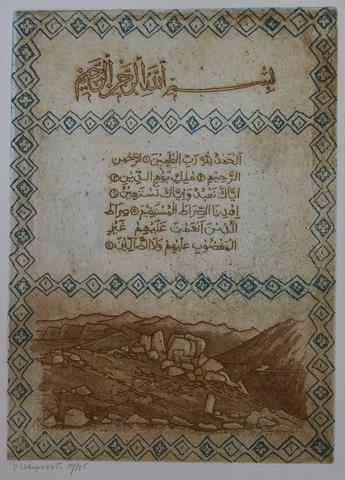 بسم الله الرحمن الرحيم
الحمد لله رب العلمين ۝ الرحمن
الرحيم ۝ ملك يوم الدين ۝
اياك نعبد و اياك نستعين ۝
اهدنا الصراط المستقيم ۝ صراط
الذين انعمت عليهم غير
المغضوب عليهم ولا الضالين ۝